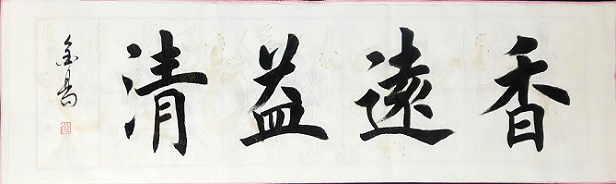 香遠益清